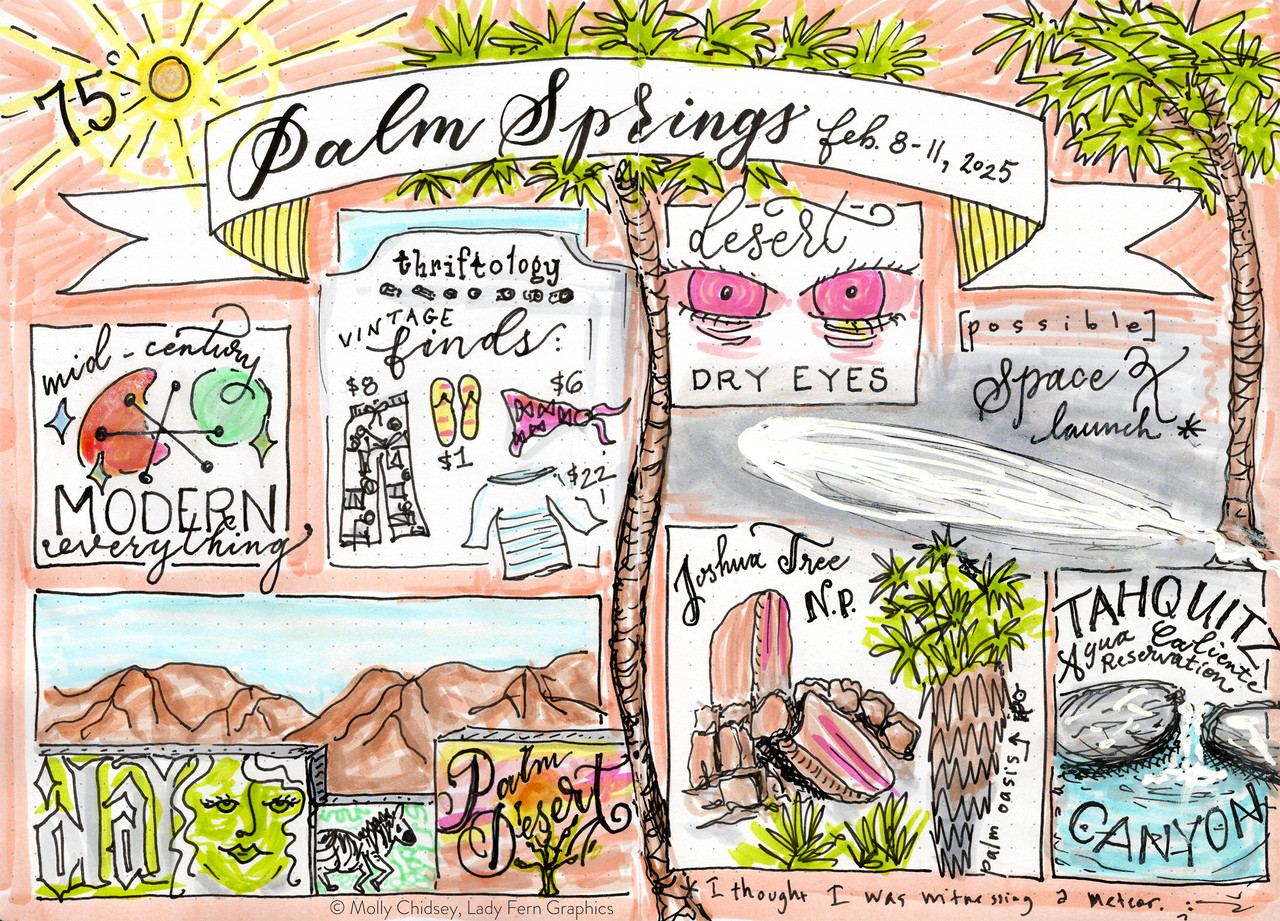 75°
Palm Springs feb. 8-11, 2025
thriftology
VINTAGE
finds:
$8
$6
$1
$22
mid-century
MODERN
everything
desert
DRY EYES
[possible]
Space X
launch *
Joshua Tree
N.P.
palm oasis
TAHQUITZ
Agua Caliente
Reservation
CANYON
Palm
Desert
* I thought I was witnessing a meteor.
© Molly Chidsey, Lady Fern Graphics